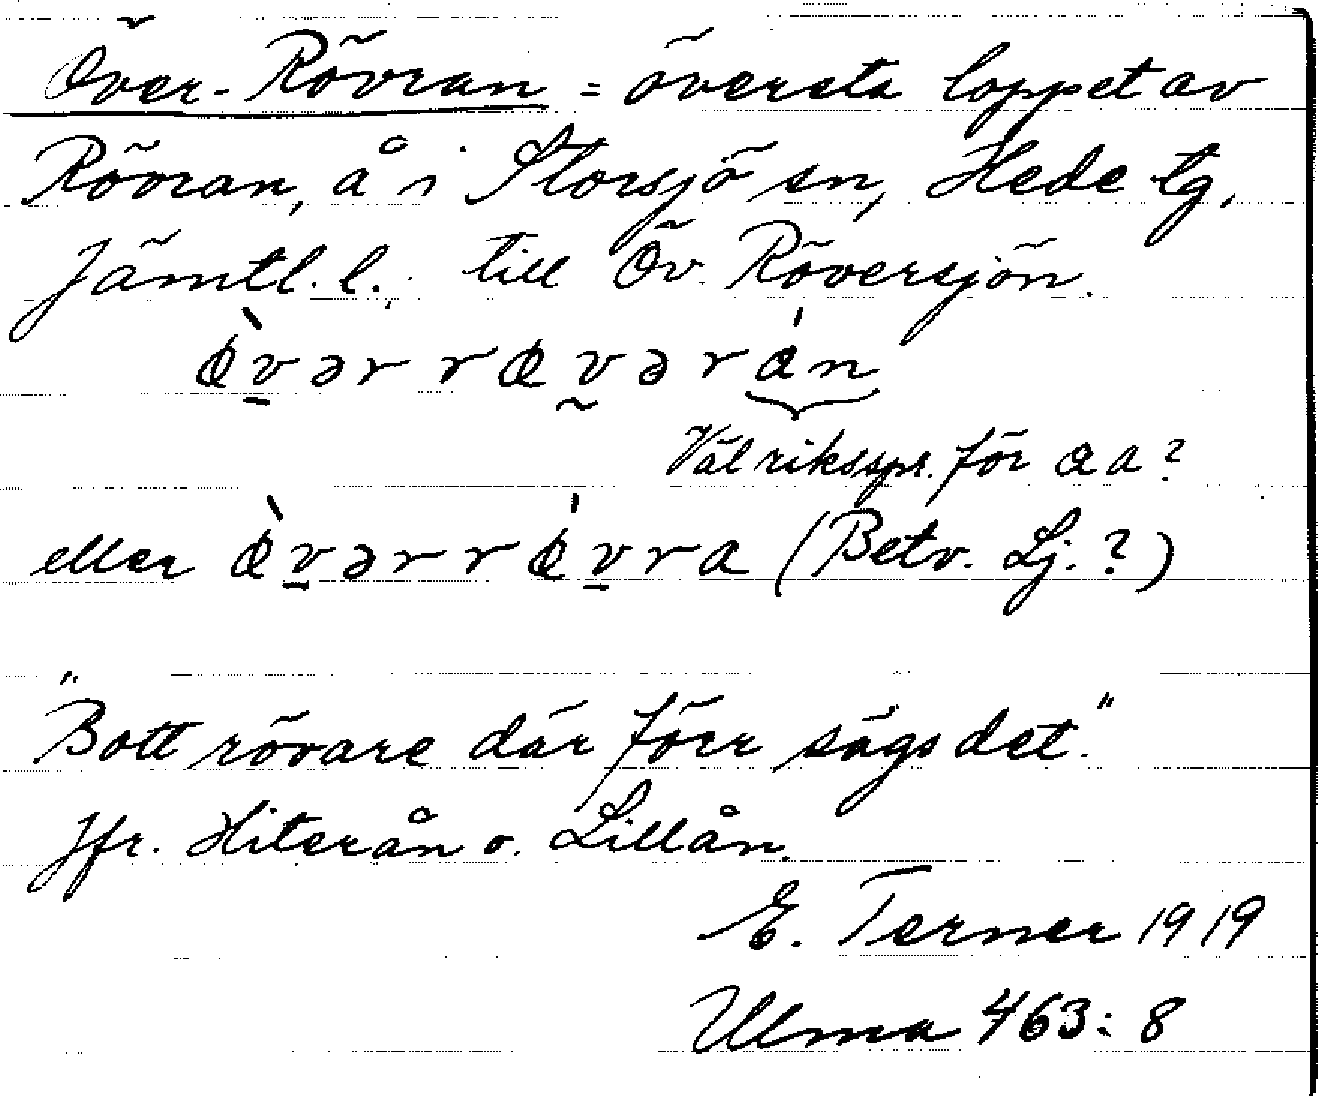 Över-Rövran = översta loppet av
Rövran, å i Storsjö sn, Hede tg,
Jämtl. l., till Öv. Röversjön.
ø̀vər røvərán
Väl riksspr. för a a?
eller ø̀vər rǿvra (Betv. Lj.?)
"Bott rövare där förr sägs det."
Jfr. Hiterån o. Lillån.
E. Terner 1919
Ulma 463:8